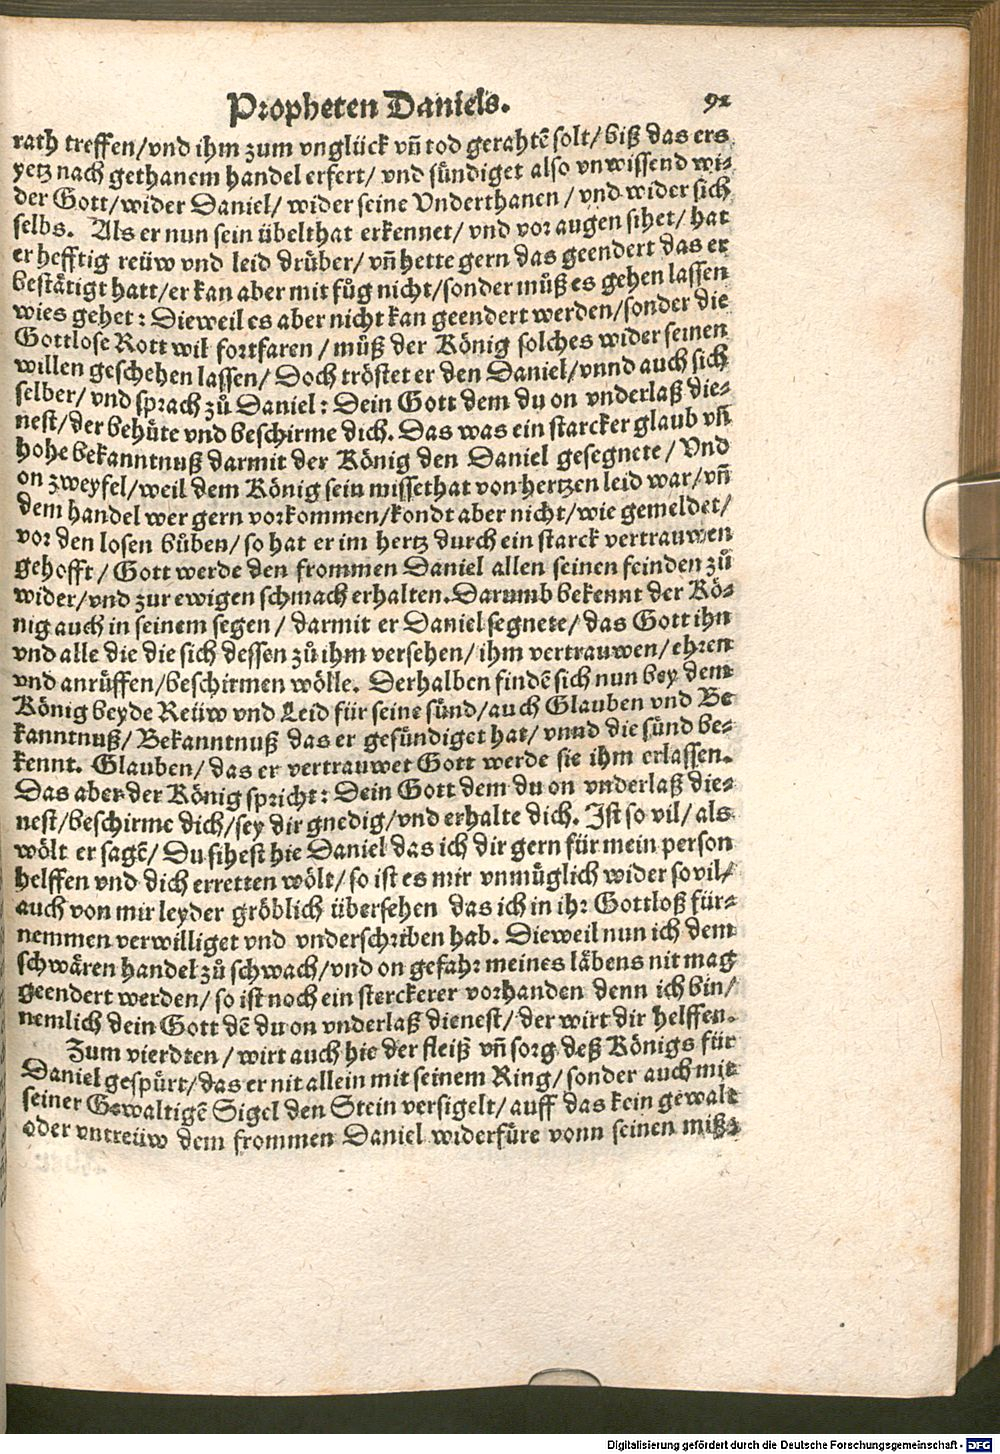 Propheten Daniels. 92
rath treffen/vnd ihm zum vnglück vñ tod gerahtẽ solt/biß das ers
yetz nach gethanem handel erfert/ vnd sündiget also vnwissend wi-
der Gott/wider Daniel/ wider seine Vnderthanen / vnd wider sich
selbs. Als er nun sein übelthat erkennet/ vnd vor augen sihet/ hat
er hefftig reüw vnd leid drüber/ vñ hette gern das geendert das er
bestätigt hatt/er kan aber mit fůg nicht/sonder můß es gehen lassen
wies gehet: Dieweil es aber nicht kan geendert werden/sonder die
Gottlose Rott wil fortfaren / můß der König solches wider seinen
willen geschehen lassen/ Doch tröstet er den Daniel/vnnd auch sich
selber/ vnd sprach zů Daniel: Dein Gott dem du on vnderlaß die-
nest/der behüte vnd beschirme dich. Das was ein starcker glaub vñ
hohe bekanntnuß darmit der König den Daniel gesegnete / Vnd
on zweyfel/weil dem König sein missethat von hertzen leid war/vñ
dem handel wer gern vorkommen/kondt aber nicht/wie gemeldet/
vor den losen bůben/ so hat er im hertz durch ein starck vertrauwen
gehofft / Gott werde den frommen Daniel allen seinen feinden zů
wider/vnd zur ewigen schmach erhalten. Darumb bekennt der Kö-
nig auch in seinem segen / darmit er Daniel segnete/ das Gott ihn
vnd alle die die sich dessen zů ihm versehen/ ihm vertrauwen/ ehren
vnd anrüffen/beschirmen wölle. Derhalben findẽ sich nun bey dem
König beyde Reüw vnd Leid für seine sünd/auch Glauben vnd Be
kanntnuß/ Bekanntnuß das er gesündiget hat/ vnnd die sünd be-
kennt. Glauben/ das er vertrauwet Gott werde sie ihm erlassen.
Das aber der König spricht: Dein Gott dem du on vnderlaß die-
nest/beschirme dich/sey dir gnedig/vnd erhalte dich. Ist so vil/ als
wölt er sagẽ/ Du sihest hie Daniel das ich dir gern für mein person
helffen vnd dich erretten wölt/ so ist es mir vnmüglich wider so vil/
auch von mir leyder gröblich übersehen das ich in ihr Gottloß für-
nemmen verwilliget vnd vnderschriben hab. Dieweil nun ich dem
schwären handel zů schwach/vnd on gefahr meines läbens nit mag
geendert werden/ so ist noch ein sterckerer vorhanden denn ich bin/
nemlich dein Gott dẽ du on vnderlaß dienest/ der wirt dir helffen.
Zum vierdten / wirt auch hie der fleiß vñ sorg deß Königs für
Daniel gespürt/das er nit allein mit seinem Ring/ sonder auch mit
seiner Gewaltigẽ Sigel den Stein versigelt/ auff das kein gewalt
oder vntreüw dem frommen Daniel widerfüre vonn seinen miß-
Digitalisierung gefördert durch die Deutsche Forschungsgemeinschaft - DFG